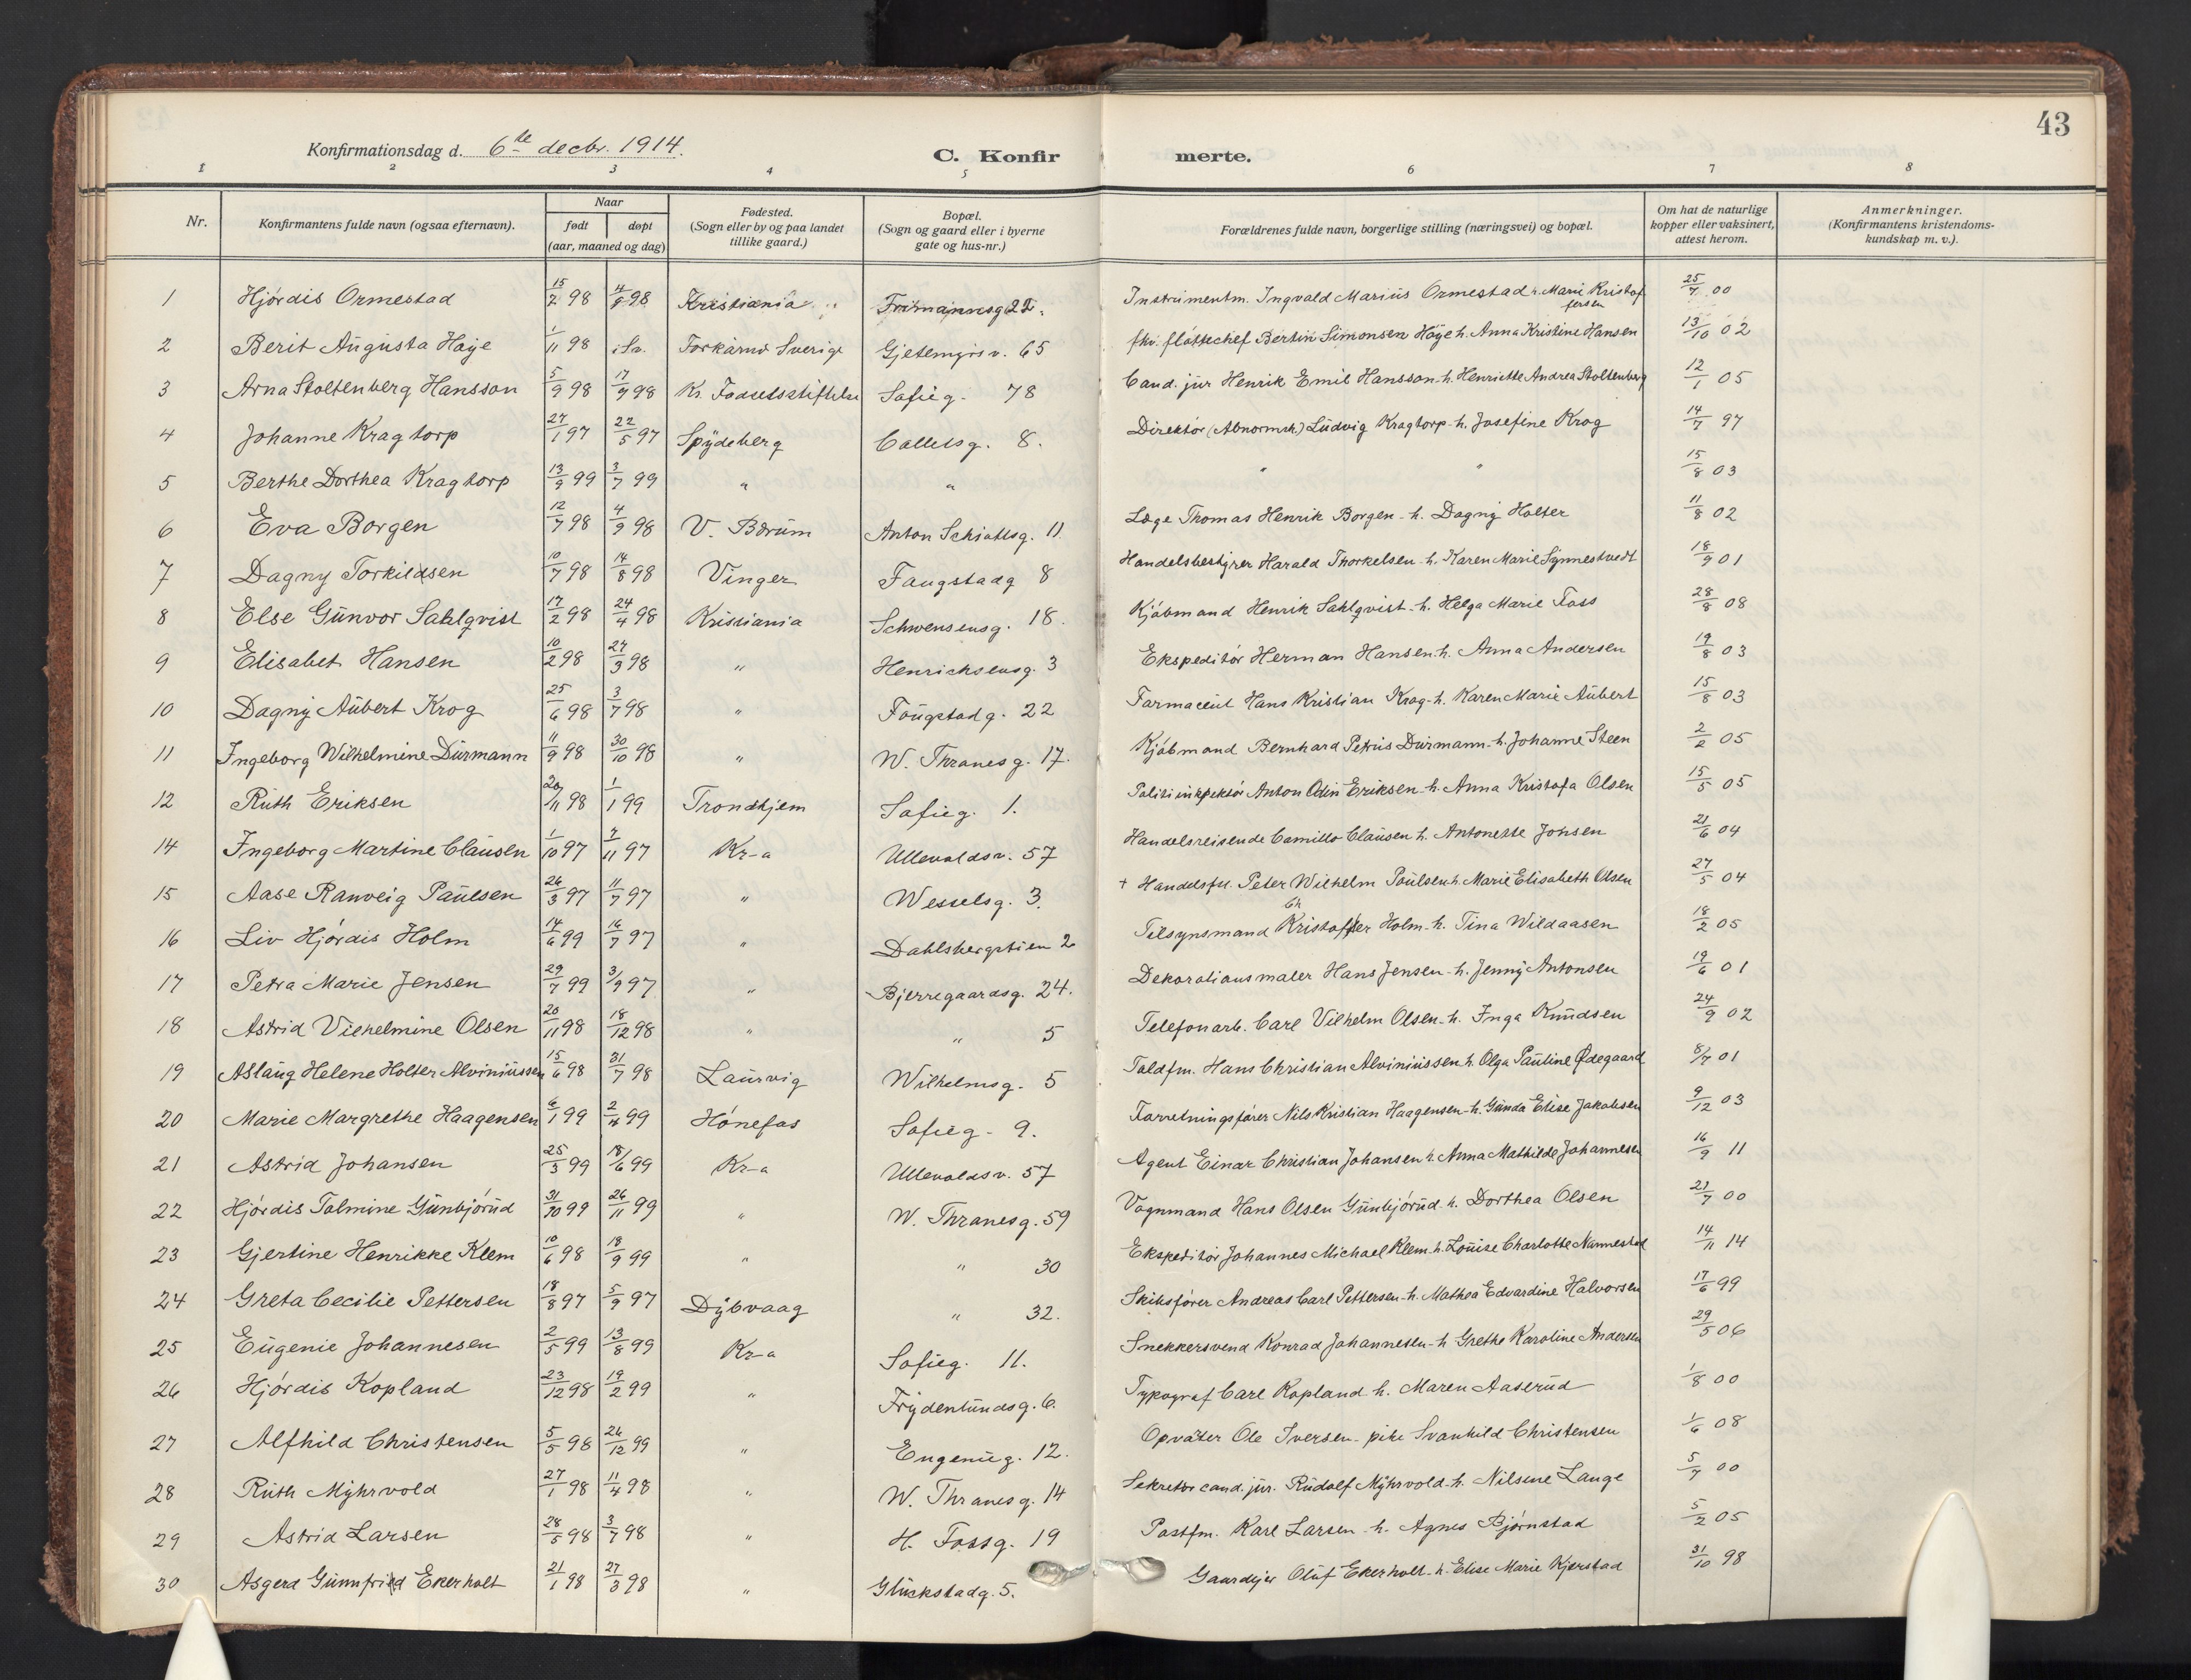 43
Konfirmationsdag d. 6te decbr. 1914.
C. Konfir merte.
1 2 3 4 5 6 7 8
Nr. Konfirmantens fulde navn (ogsaa efternavn). Naar født døpt (aar, maaned og dag) Fødested. (Sogn eller by og paa landet tillike gaard.) Bopæl. (Sogn og gaard eller i byerne gate og hus-nr.) Forældrenes fulde navn, borgerlige stilling (næringsvei) og bopæl. Om hat de naturlige kopper eller vaksinert, attest herom. Anmerkninger. (Konfirmantens kristendoms-kundskap m. v.).
1 Hjördis Ormestad 15/2 98 98 Kristiania 22. Instrumentm. Ingvald Marius Ormestad h. Marie Kristoffersen 25/7 00
2 Berit Augusta Høye 1/11 98 i Sv. Sverige 65 flöttechef Bertin Simonsen Höye h. Anna Kristine Hansen 13/10 02
3 Arna Stoltenberg Hansson 5/9 98 17/9 98 Kr. Födselsstiftelse Sofieg. 78 Cand. jur Henrik Emil Hansson h. Henriette Andrea Stoltenberg 12/1 05
4 Johanne Kragtorp 27/1 97 22/5 97 Spydeberg Colletsg. 8. Direktör (Abnormsk.) Ludvig Kragtorp h. Josefine Krog 14/7 97
5 Berthe Dorthea Kragtorp 13/9 99 3/7 99 " " " " 15/8 03
6 Eva Borgen 12/7 98 4/9 98 V. Bærum Anton Schiøttsg. 11 Læge Thomas Henrik Borgen h. Dagny Holter 11/8 02
7 Dagny Torkildsen 10/7 98 14/8 98 Vinger Faugstadg 8 Handelsbestyrer Harald Thorkelsen h. Karen Marie Synnestvedt 18/9 01
8 Else Gunvor Sahlqvist 17/2 98 24/4 98 Kristiania Schwensensg. 18. Kjöbmand Henrik Sahlqvist h. Helga Marie Foss 28/8 08
9 Elisabet Hansen 10/2 98 27/3 98 " Henrichsensg. 3 Ekspeditör Herman Hansen h. Anna Andersen 19/8 03
10 Dagny Aubert Krog 25/6 98 3/7 98 " Fougstadg. 22 Farmaceut Hans Kristian Krog h. Karen Marie Aubert 15/8 03
11 Ingeborg Wilhelmine Durmann 11/9 98 30/10 98 " W. Thranesg. 17. Kjöbmand Bernhard Petrus Durmann h. Johanne Steen 2/2 05
12 Ruth Eriksen 20/11 98 1/1 99 Trondhjem Sofieg. 1. Politiinspektör Anton Odin Eriksen h. Anna Kristofa Olsen 15/5 05
14 Ingeborg Martine Clausen 1/10 97 7/11 97 Kr-a Ullevoldsv. 57 Handelsreisende Camillo Clausen h. Antonette Jonsen 21/6 04
15 Aase Ranveig Paulsen 26/3 97 11/7 97 " Wesselsg. 3. + Handelsfu. Peter Wilhelm Poulsen h. Marie Elisabeth Olsen 27/5 04
16 Liv Hjördis Holm 14/6 99 16/7 97 " Dahlsbergstien 2 Tilsynsmand Ch Kristoffer Holm h. Tina Wildaasen 18/2 05
17 Petra Marie Jensen 29/7 99 3/9 97 " Bjerregaardsg. 24. Dekorationsmaler Hans Jensen h. Jenny Antonsen 19/6 01
18 Astrid Vilhelmine Olsen 20/11 98 18/12 98 " " 5 Telefonarb. Carl Vilhelm Olsen h. Inga Knudsen 24/9 02
19 Aslaug Helene Holter Alviniussen 15/6 98 31/7 98 Laurvig Wilhelmsg. 5 Toldfm. Hans Christian Alviniussen h. Olga Pauline Ødegaard 8/7 01
20 Marie Margrethe Haagensen 6/1 99 2/4 99 Hönefos Sofieg. 9. Forretningsförer Nils Kristian Haagensen h. Gunda Elise Jakobsen 9/12 03
21 Astrid Johansen 25/3 99 18/6 99 Kr-a Ullevoldsv. 57 Agent Einar Christian Johansen h. Anna Mathilde Johannesen 16/9 11
22 Hjördis Tolmine Gunbjörud 31/10 99 26/11 99 " W. Thranesg. 59 Vognmand Hans Olsen Gunbjörud h. Dorthea Olsen 21/7 00
23 Gjertine Henrikke Klem 10/6 98 18/9 99 " " 30 Ekspeditör Johannes Michael Klem h. Louise Charlotte Nannestad 14/11 14
24 Greta Cecilie Pettersen 18/8 97 5/9 97 Dybvaag " 32. Skibsförer Andreas Carl Pettersen h. Mathea Edvardine Halvorsen 17/6 99
25 Eugenie Johannesen 2/5 99 13/8 99 Kr-a Sofieg. 11. Snekkersvend Konrad Johannesen h Grethe Karoline Andersen 29/5 06
26 Hjördis Kopland 23/12 98 19/2 99 " Frydenlundsg. 6. Typograf Carl Kopland h. Maren Aaserud 1/8 00
27 Alfhild Christensen 5/5 98 26/12 99 " Eugenieg. 12. Opvåter Ole Iversen pike Svanhild Christensen 1/6 08
28 Ruth Myhrvold 27/1 98 11/4 98 " W. Thranesg. 14 Sekretær cand. jur. Rudolf Myhrvold h. Nilsine Lange 5/7 00
29 Astrid Larsen 28/5 98 3/7 98 " H. Fossg. 19 Postfm. Karl Larsen h. Agnes Bjørnstad 5/2 05
30 Asgerd Gunnfried Ekerholt 21/1 98 27/3 98 " Glückstadg. 5. Gaardejer Oluf Ekerholt h. Elise Marie Kjerstad 31/10 98